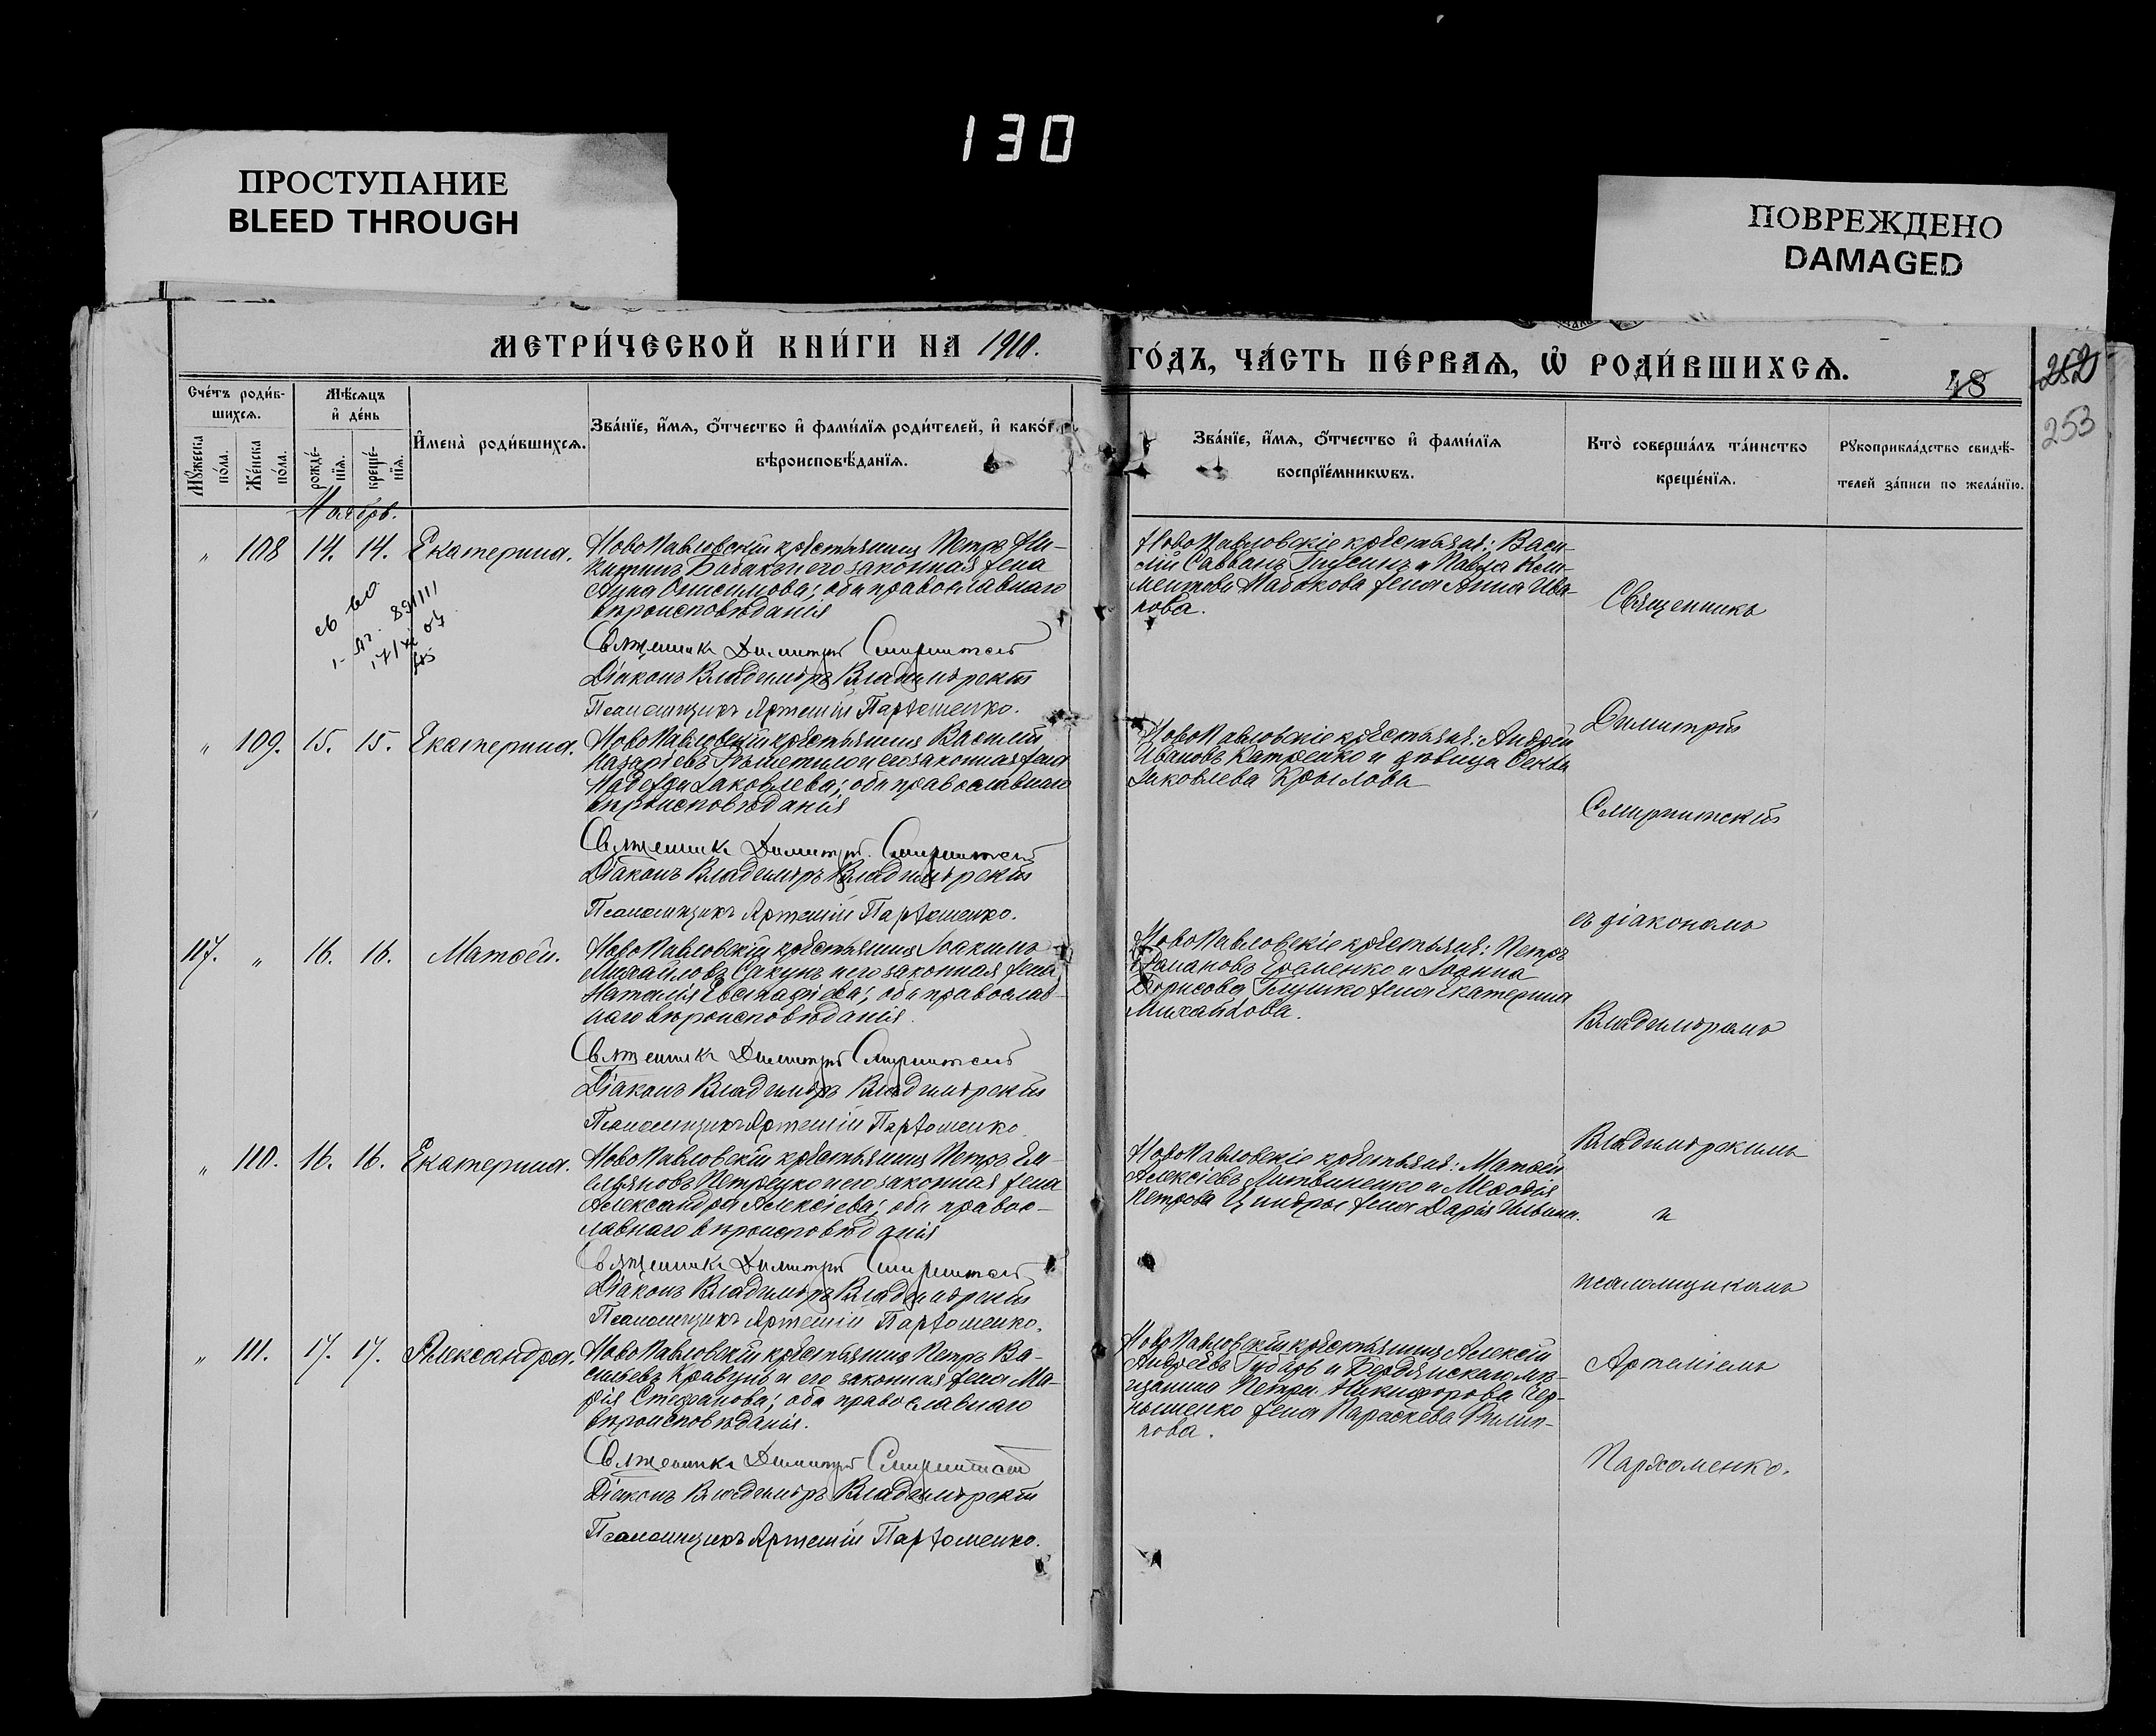 130
ПРОСТУПАНИЕ
BLEED THROUGH
ПОВРЕЖДЕНО
DAMAGED
МЕТРИ́ЧЕСКОЙ КНИ́ГИ НА 1910.
ГО́ДЪ, ЧА́СТЬ ПЕ́РВАѦ, Ѿ РОДИ́ВШИХСѦ.
48
252
253
Сче́тъ роди́в-
шихсѧ.
Мꙋ́жеска по́ла.
Же́нска по́ла.
Мѣ́сѧцъ
и҆ де́нь
рожде́-
нїѧ.
креще́-
нїѧ.
И҆мена̀ роди́вшихсѧ.
Зва́нїе, и҆́мѧ, ѻ҆́тчество и҆ фами́лїѧ роди́телей, и҆ како́г
вѣроисповѣ́данїѧ.
Зва́нїе, и҆́мѧ, ѻ҆́тчество и҆ фами́лїѧ
воспрїе́мникѡвъ.
Кто̀ соверша́лъ та́инство
креще́нїѧ.
Рꙋкоприкла́дство свидѣ́-
телей за́писи по жела́нїю.
Ноябрь.
" 108 14. 14. Екатерина.
НовоПавловскій крестьянинъ Петръ Ни-
китинъ Бабакъ и его законная жена
Анна Онисимова; оба православнаго
вѣроисповѣданія
Священникъ Димитрій Смиритскій
Діаконъ Владиміръ Владимірскій
Псаломщикъ Артемій Пархоменко.
НовоПавловскіе крестьяне: Васи-
лій Саввинъ и Павла Кли-
ментова Набокова жена Анна Ива-
нова.
" 109. 15. 15. Екатерина.
НовоПавловскій крестьянинъ Василій
Назаріевъ Рѣшетило и его законная жена
Надежда Іаковлева; оба православнаго
вѣроисповѣданія
Священникъ Димитрій Смиритскій
Діаконъ Владиміръ Владимірскій
Псаломщикъ Артемій Пархоменко.
НовоПавловскіе крестьяне: Андрей
Ивановъ Катренко и дѣвица
Іаковлева Крылова
117. " 16. 16. Матѳей.
НовоПавловскій крестьянинъ Іоакимъ
Михайловъ Сакунъ и его законная жена
Наталія; оба православ-
наго вѣроисповѣданія.
Священникъ Димитрій Смиритскій
Діаконъ Владиміръ Владимірскій
Псаломщикъ Артемій Пархоменко
НовоПавловскіе крестьяне: Петръ
Романовъ Еременко и Іоанна
Борисова Глушко жена Екатерина
Михайлова.
" 110. 16. 16. Екатерина.
НовоПавловскій крестьянинъ Петръ Ем-
ельяновъ Петренко и его законная жена
Александра Алексіева; оба правос-
лавнаго вѣроисповѣданія
Священникъ Димитрій Смиритскій
Діаконъ Владиміръ Владимірскій
Псаломщикъ Артемій Пархоменко.
НовоПавловскіе крестьяне: Матѳей
Алексіевъ Литвиненко и Меѳодія
Петрова Циндры жена Дарія Ильина.
" 111. 17. 17. Александра.
НовоПавловскій крестьянинъ Петръ Ва-
сильевъ Кравчунъ и его законная жена Ма-
рія Стефанова; оба православнаго
вѣроисповѣданія.
Священникъ Димитрій Смиритскій
Діаконъ Владиміръ Владимірскій
Псаломщикъ Артемій Пархоменко.
НовоПавловскій крестьянинъ Алексій
Андреевъ Губарь и Бердянскаго мѣ-
щанина Петра Никифорова Чер-
нышенко жена Параскева Филип-
пова.
Священникъ
Димитрій
Смиритскій
съ діакономъ
Владиміромъ
Владимірскимъ
и
псаломщикомъ
Артеміемъ
Пархоменко.